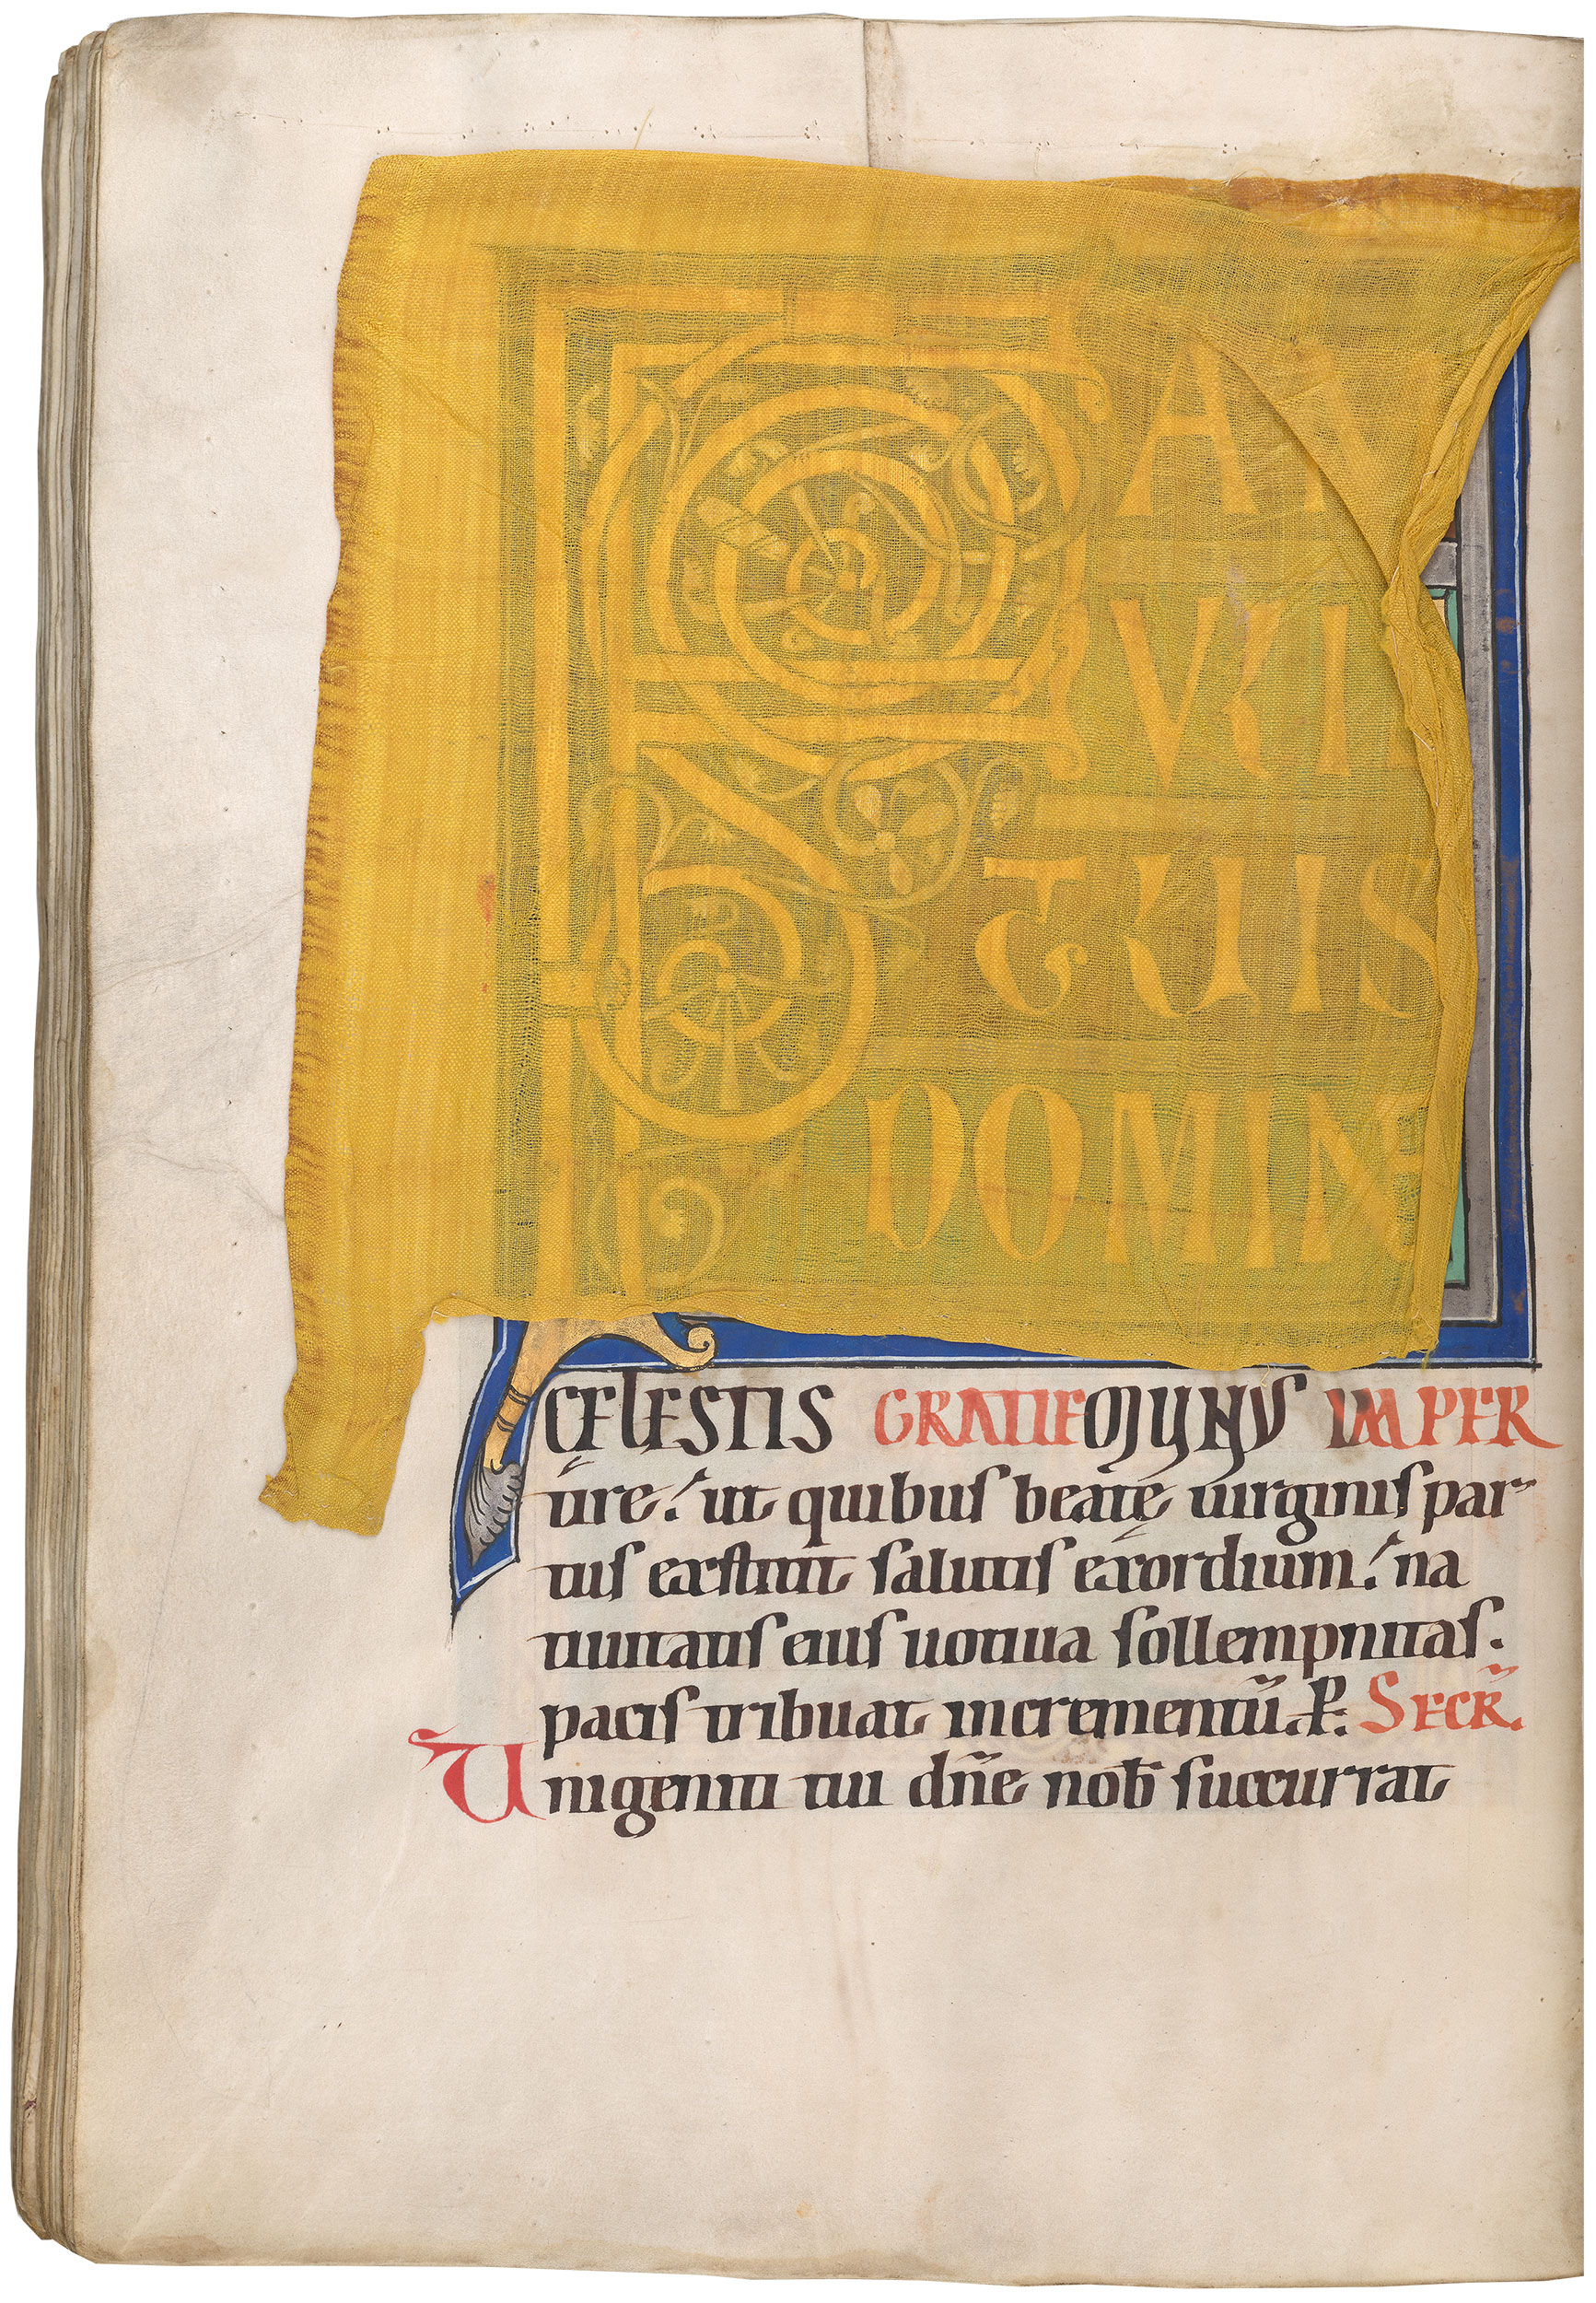 FAM
VLI
TUIS
DOMINE
CELESTIS GRATIE MUNUS IMPER
tire. ut quibus beatę uirginis par
tus exstitit salutis exordium. na
tiuitatis eius uotiua sollempnitas.
pacis tribuat incrementū. P. SECR̄.
Unigeniti tui dn̄e nob̄ succurrat